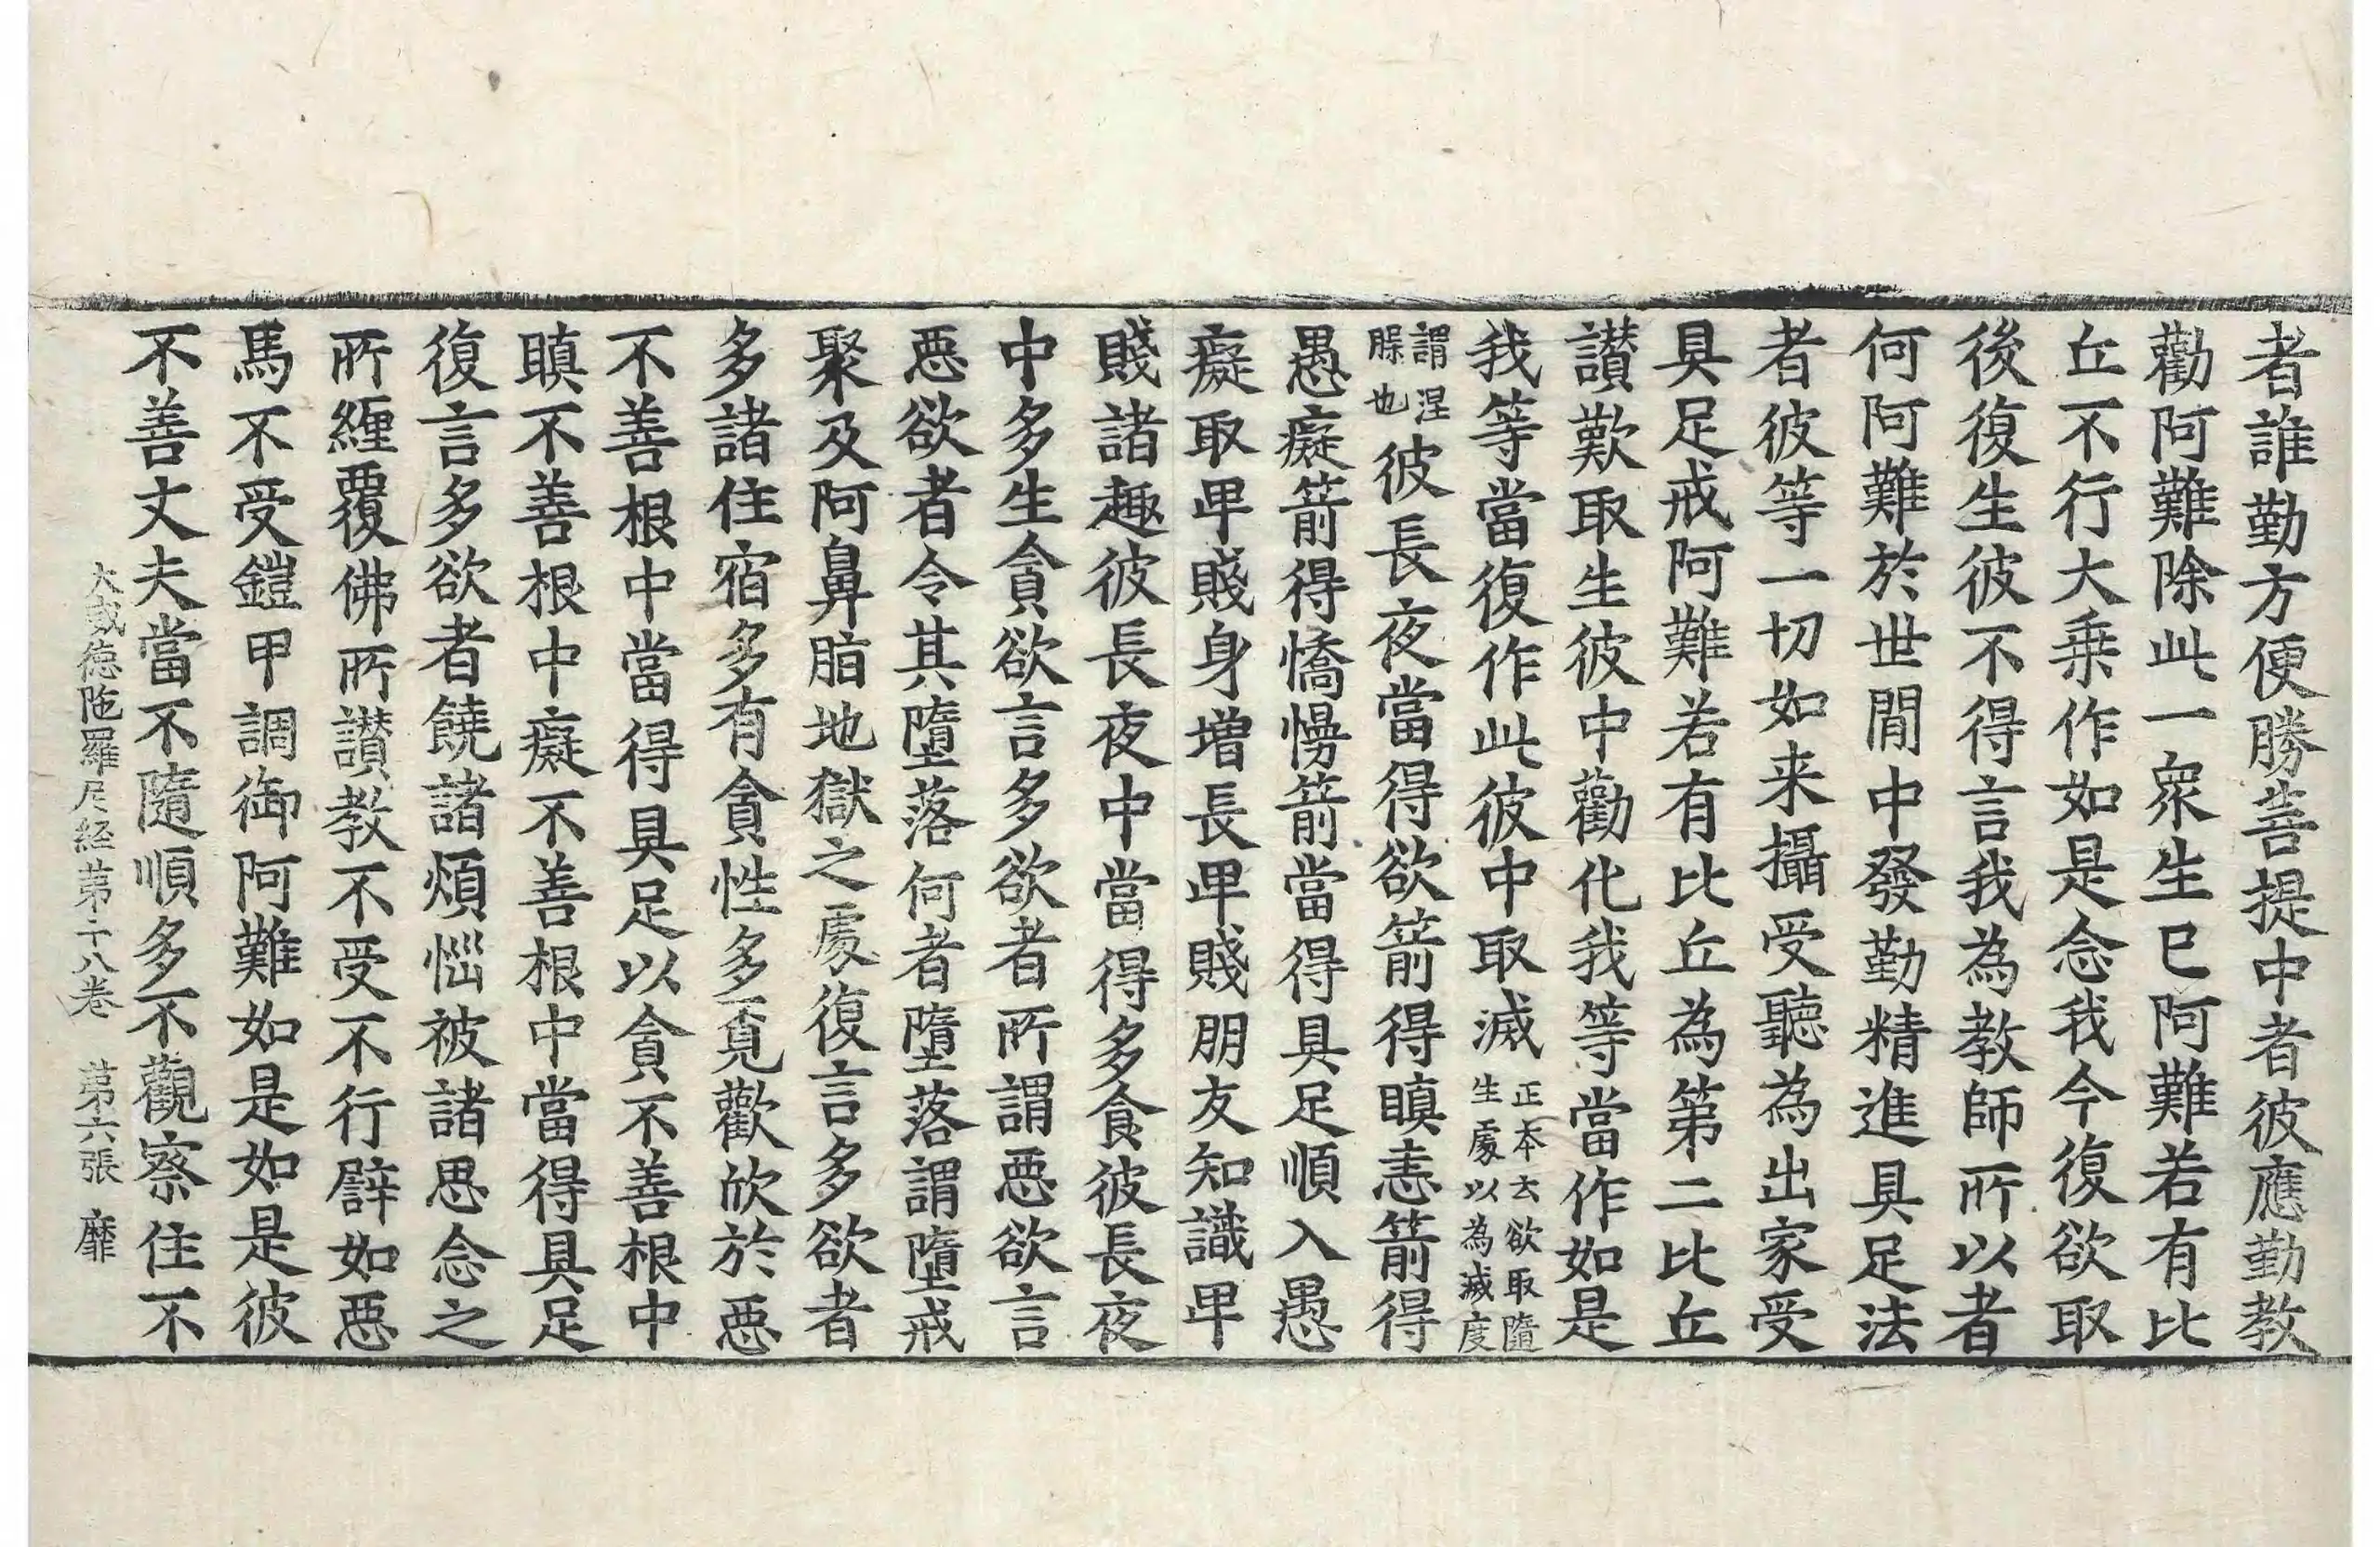 者誰勤方便勝菩提中者彼應勤教
勸阿難除此一衆生已阿難若有比
丘不行大乗作如是念我今復欲取
後復生彼不得言我為教師所以者
何阿難於世間中發勤精進具足法
者彼等一切如来攝受聽為出家受
具足戒阿難若有比丘為第二比丘
讃歎取生彼中勸化我等當作如是
我等當復作此彼中取滅正本云欲取隨生處以為滅度
謂涅槃也彼長夜當得欲箭得瞋恚箭得
愚癡箭得憍慢箭當得具足順入愚
癡取卑賤身增長卑賤朋友知識卑
賤諸趣彼長夜中當得多食彼長夜
中多生貪欲言多欲者所謂惡欲言
惡欲者令其墮落何者墮落謂墮戒
聚及阿鼻脂地獄之處復言多欲者
多諸住宿多有貪性多覓歡欣於惡
不善根中當得具足以貪不善根中
瞋不善根中癡不善根中當得具足
復言多欲者饒諸煩惱被諸思念之
所纏覆佛所讃教不受不行譬如惡
馬不受鎧甲調御阿難如是如是彼
不善丈夫當不隨順多不觀察住不
大威德陁羅尼経第十八卷 第六張 靡